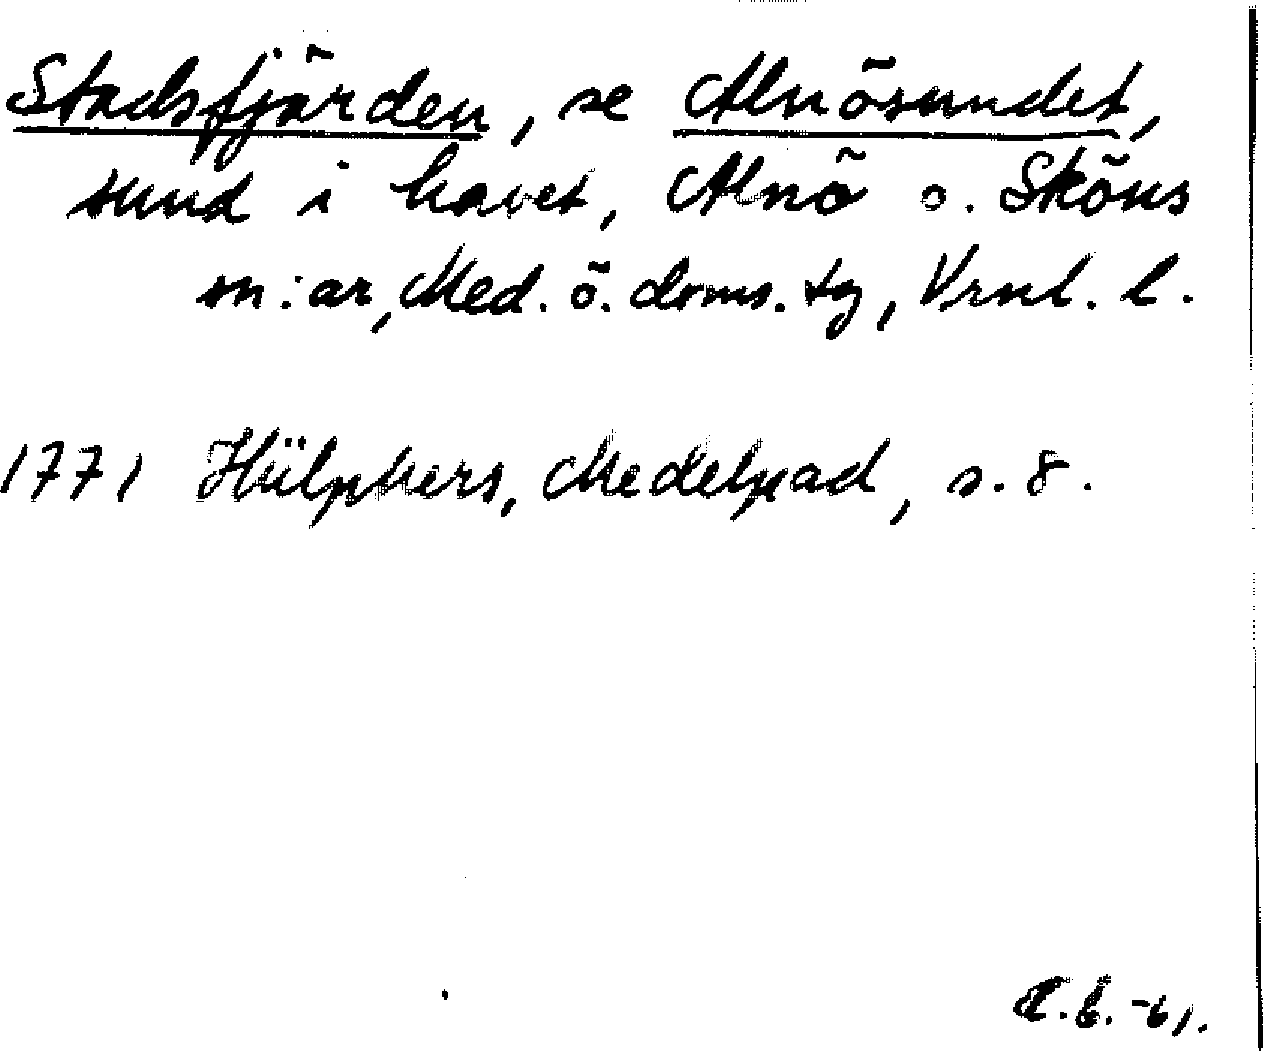 Stadsfjärden, se Alnösundet,
sund i havet, Alnö o. Sköns
sn:ar, Med. ö. doms. tg, Vrnl. l.
1771 Hülphers, Medelpad, s. 8.
-61.